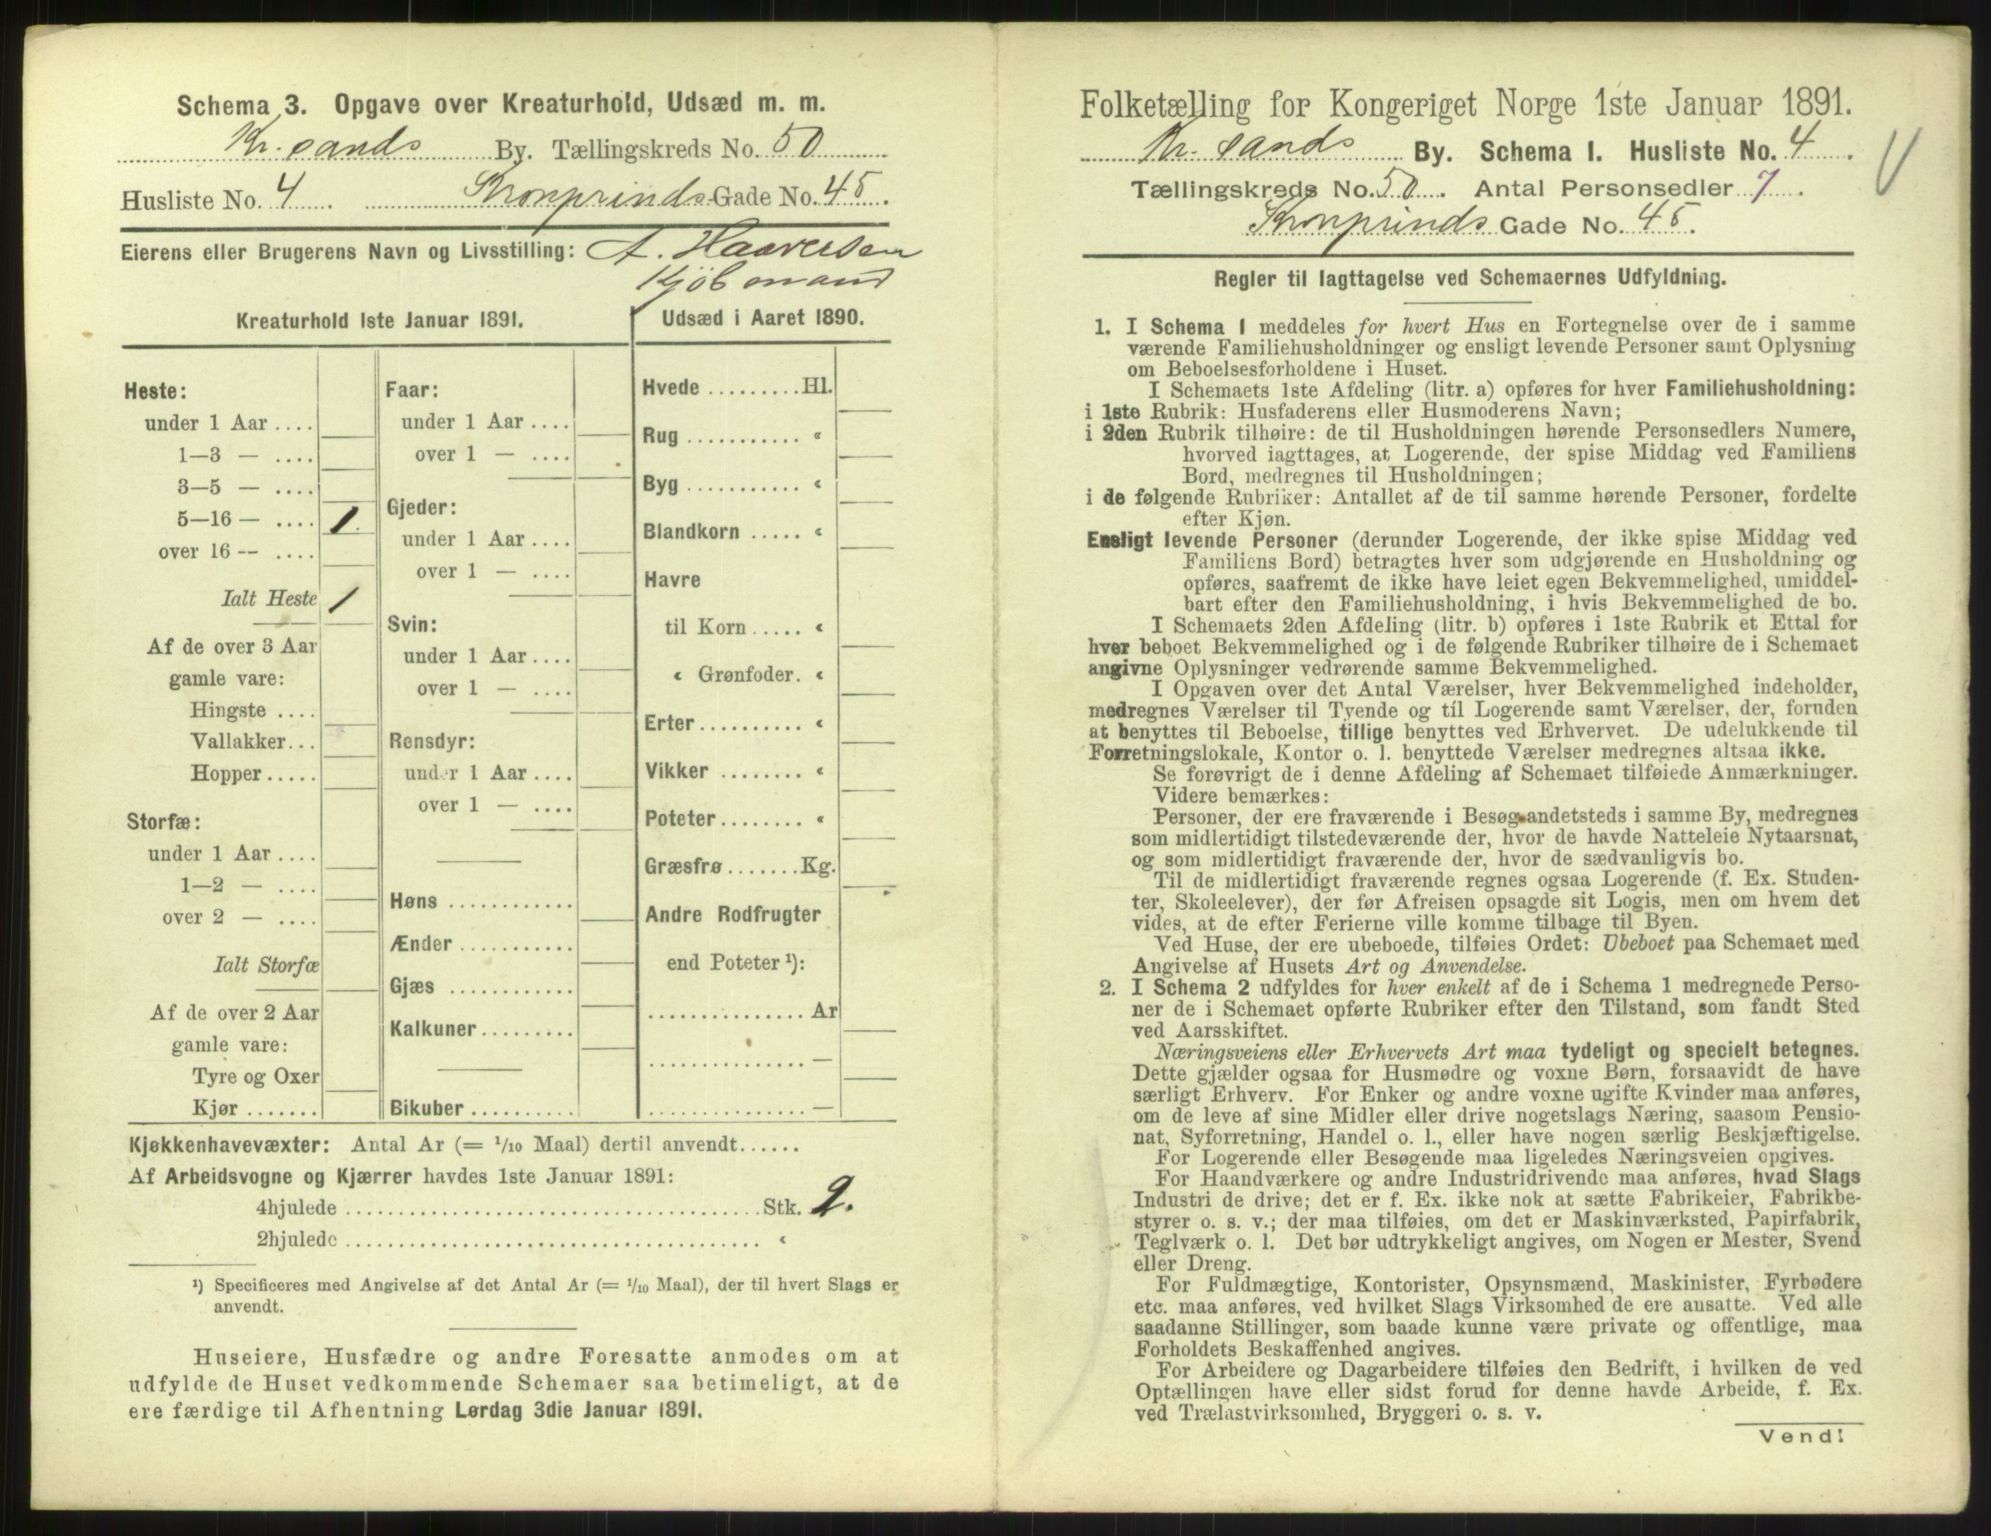 Schema 3. Opgave over Kreaturhold, Udsæd m. m.
Kr. sands By. Tællingskreds No. 50
Husliste No. 4 Kronprinds Gade No. 45.
Eierens eller Brugerens Navn og Livsstilling: A. Haaversen
Kjöbmand
Kreaturhold 1ste Januar 1891.
Heste:
under 1 Aar ....
1—3 — ....
3—5 — ....
5—16 — .... 1.
over 16 -- ....
Ialt Heste 1
Af de over 3 Aar
gamle vare:
Hingste ....
Vallakker...
Hopper.....
Storfæ:
under 1 Aar ....
1—2 — ....
over 2 — ....
Ialt Storfæ
Af de over 2 Aar
gamle vare:
Tyre og Oxer
Kjør .......
Faar:
under 1 Aar ....
over 1 — ....
Gjeder:
under 1 Aar ....
over 1 — ....
Svin:
under 1 Aar ....
over 1 — ....
Rensdyr:
under 1 Aar ....
over 1 — ....
Høns ............
Ænder ...........
Gjæs ............
Kalkuner.........
Bikuber ..........
Udsæd i Aaret 1890.
Hvede .........Hl.
Rug ........... «
Byg ........... «
Blandkorn ..... «
Havre
til Korn ..... «
« Grønfoder. «
Erter .......... «
Vikker ........ «
Poteter ........ «
Græsfrø .......Kg.
Andre Rodfrugter
end Poteter ¹):
............... Ar
............... —
............... —
Kjøkkenhavevæxter: Antal Ar (= 1/10 Maal) dertil anvendt......
Af Arbeidsvogne og Kjærrer havdes 1ste Januar 1891:
4hjulede ....................................... Stk. 2.
2hjulede ....................................... «
¹) Specificeres med Angivelse af det Antal Ar (= 1/10 Maal), der til hvert Slags er
anvendt.
Huseiere, Husfædre og andre Foresatte anmodes om at
udfylde de Huset vedkommende Schemaer saa betimeligt, at de
ere færdige til Afhentning Lørdag 3die Januar 1891.
Folketælling for Kongeriget Norge 1ste Januar 1891.
Kr. sands By. Schema I. Husliste No. 4
Tællingskreds No. 50. Antal Personsedler 7.
Kronprinds Gade No. 45.
Regler til Iagttagelse ved Schemaernes Udfyldning.
1. I Schema 1 meddeles for hvert Hus en Fortegnelse over de i samme
værende Familiehusholdninger og ensligt levende Personer samt Oplysning
om Beboelsesforholdene i Huset.
I Schemaets 1ste Afdeling (litr. a) opføres for hver Familiehusholdning:
i 1ste Rubrik: Husfaderens eller Husmoderens Navn;
i 2den Rubrik tilhøire: de til Husholdningen hørende Personsedlers Numere,
hvorved iagttages, at Logerende, der spise Middag ved Familiens
Bord, medregnes til Husholdningen;
i de følgende Rubriker: Antallet af de til samme hørende Personer, fordelte
efter Kjøn.
Ensligt levende Personer (derunder Logerende, der ikke spise Middag ved
Familiens Bord) betragtes hver som udgjørende en Husholdning og
opføres, saafremt de ikke have leiet egen Bekvemmelighed, umiddel-
bart efter den Familiehusholdning, i hvis Bekvemmelighed de bo.
I Schemaets 2den Afdeling (litr. b) opføres i 1ste Rubrik et Ettal for
hver beboet Bekvemmelighed og i de følgende Rubriker tilhøire de i Schemaet
angivne Oplysninger vedrørende samme Bekvemmelighed.
I Opgaven over det Antal Værelser, hver Bekvemmelighed indeholder,
medregnes Værelser til Tyende og til Logerende samt Værelser, der, foruden
at benyttes til Beboelse, tillige benyttes ved Erhvervet. De udelukkende til
Forretningslokale, Kontor o. l. benyttede Værelser medregnes altsaa ikke.
Se forøvrigt de i denne Afdeling af Schemaet tilføiede Anmærkninger.
Videre bemærkes:
Personer, der ere fraværende i Besøg andetsteds i samme By, medregnes
som midlertidigt tilstedeværende der, hvor de havde Natteleie Nytaarsnat,
og som midlertidigt fraværende der, hvor de sædvanligvis bo.
Til de midlertidigt fraværende regnes ogsaa Logerende (f. Ex. Studen-
ter, Skoleelever), der før Afreisen opsagde sit Logis, men om hvem det
vides, at de efter Ferierne ville komme tilbage til Byen.
Ved Huse, der ere ubeboede, tilføies Ordet: Ubeboet paa Schemaet med
Angivelse af Husets Art og Anvendelse.
2. I Schema 2 udfyldes for hver enkelt af de i Schema 1 medregnede Perso-
ner de i Schemaet opførte Rubriker efter den Tilstand, som fandt Sted
ved Aarsskiftet.
Næringsveiens eller Erhvervets Art maa tydeligt og specielt betegnes.
Dette gjælder ogsaa for Husmødre og voxne Børn, forsaavidt de have
særligt Erhverv. For Enker og andre voxne ugifte Kvinder maa anføres,
om de leve af sine Midler eller drive nogetslags Næring, saasom Pensio-
nat, Syforretning, Handel o. l., eller have nogen særlig Beskjæftigelse.
For Logerende eller Besøgende maa ligeledes Næringsveien opgives.
For Haandværkere og andre Industridrivende maa anføres, hvad Slags
Industri de drive; det er f. Ex. ikke nok at sætte Fabrikeier, Fabrikbe-
styrer o. s. v.; der maa tilføies, om det er Maskinværksted, Papirfabrik,
Teglværk o. l. Det bør udtrykkeligt angives, om Nogen er Mester, Svend
eller Dreng.
For Fuldmægtige, Kontorister, Opsynsmænd, Maskinister, Fyrbødere
etc. maa anføres, ved hvilket Slags Virksomhed de ere ansatte. Ved alle
saadanne Stillinger, som baade kunne være private og offentlige, maa
Forholdets Beskaffenhed angives.
For Arbeidere og Dagarbeidere tilføies den Bedrift, i hvilken de ved
Optællingen have eller sidst forud for denne havde Arbeide, f. Ex.
ved Trælastvirksomhed, Bryggeri o. s. v.
Vend!